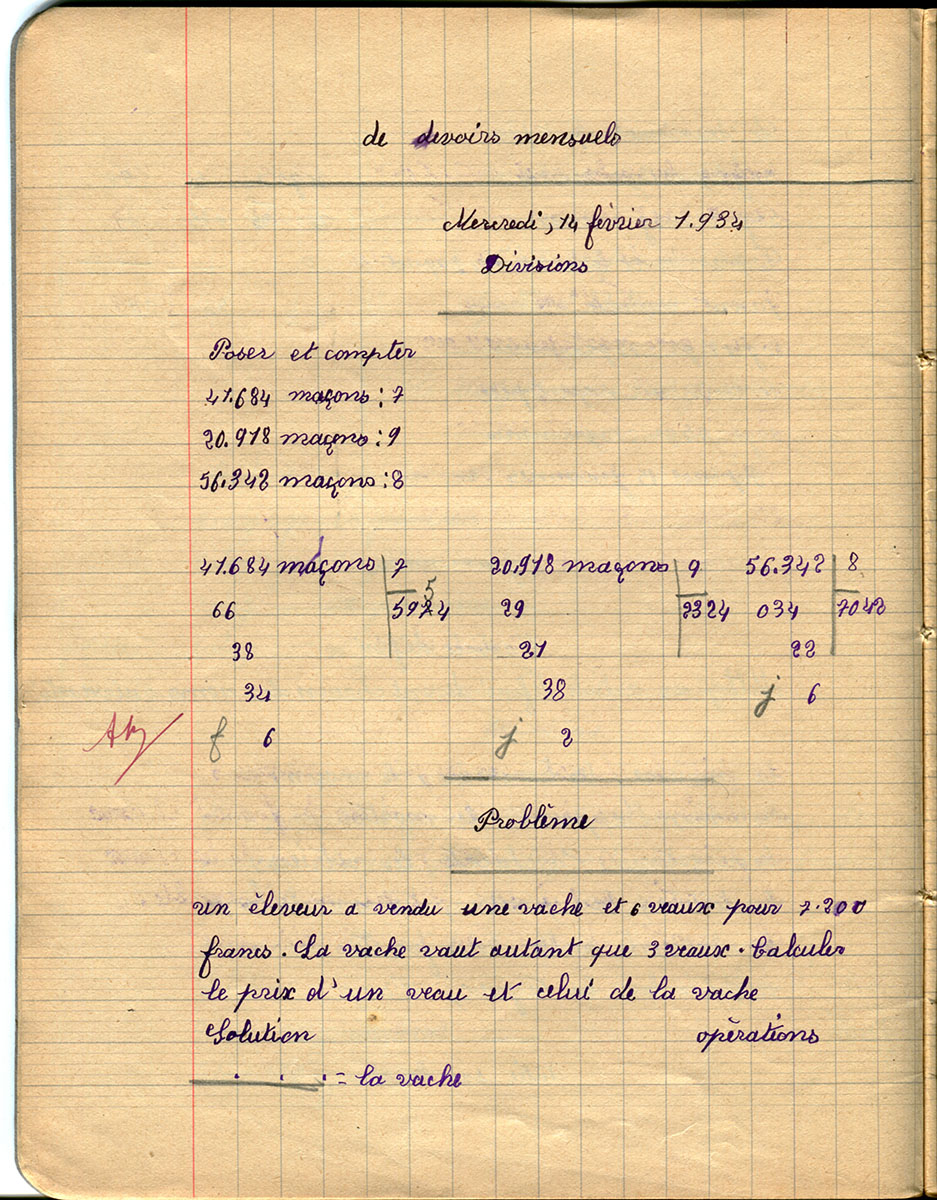 de devoirs mensuels
Mercredi, 14 février 1.934
Divisions
Poser et compter
41.684 maçons : 7
20.918 maçons : 9
56.342 maçons : 8
41.684 maçons 7 20.918 maçons 9 56.342 8
5
66 5924 29 2324 034 7042
38 21 22
34 38 j 6
f 6 j 2
Problème
un éleveur a vendu une vache et 6 veaux pour 7.200
francs. La vache vaut autant que 3 veaux. Calculer
le prix d'un veau et celui de la vache
Solution opérations
= la vache